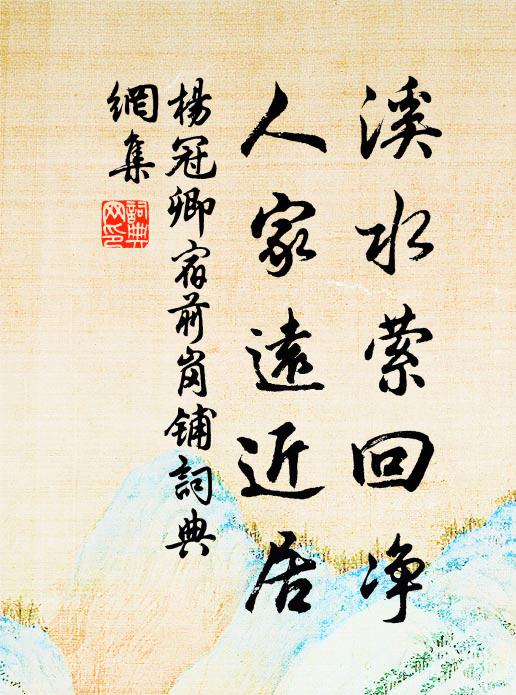 溪水萦回净
人家遠近居
楊冠卿宿前岗铺詞典
網集
詞典
网印